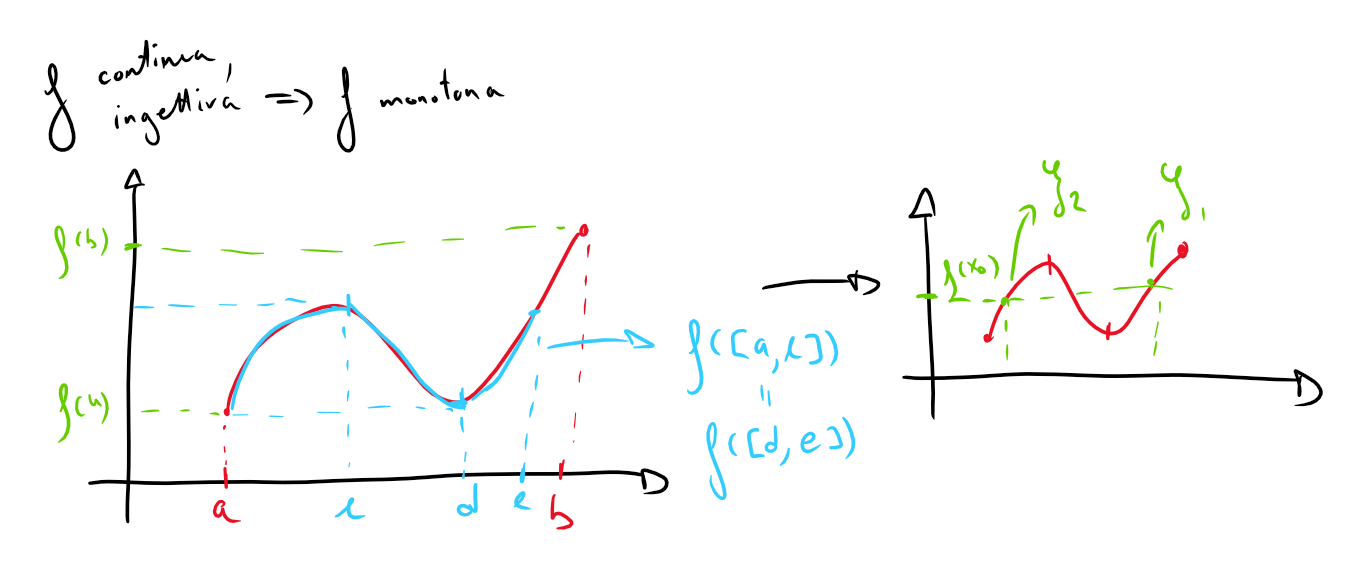 f continua,
ingettiva => f monotona
f(b)
f(a)
a c d e b
f([a,c])
"
f([d,e])
f(x₀)
ξ₂
ξ₁